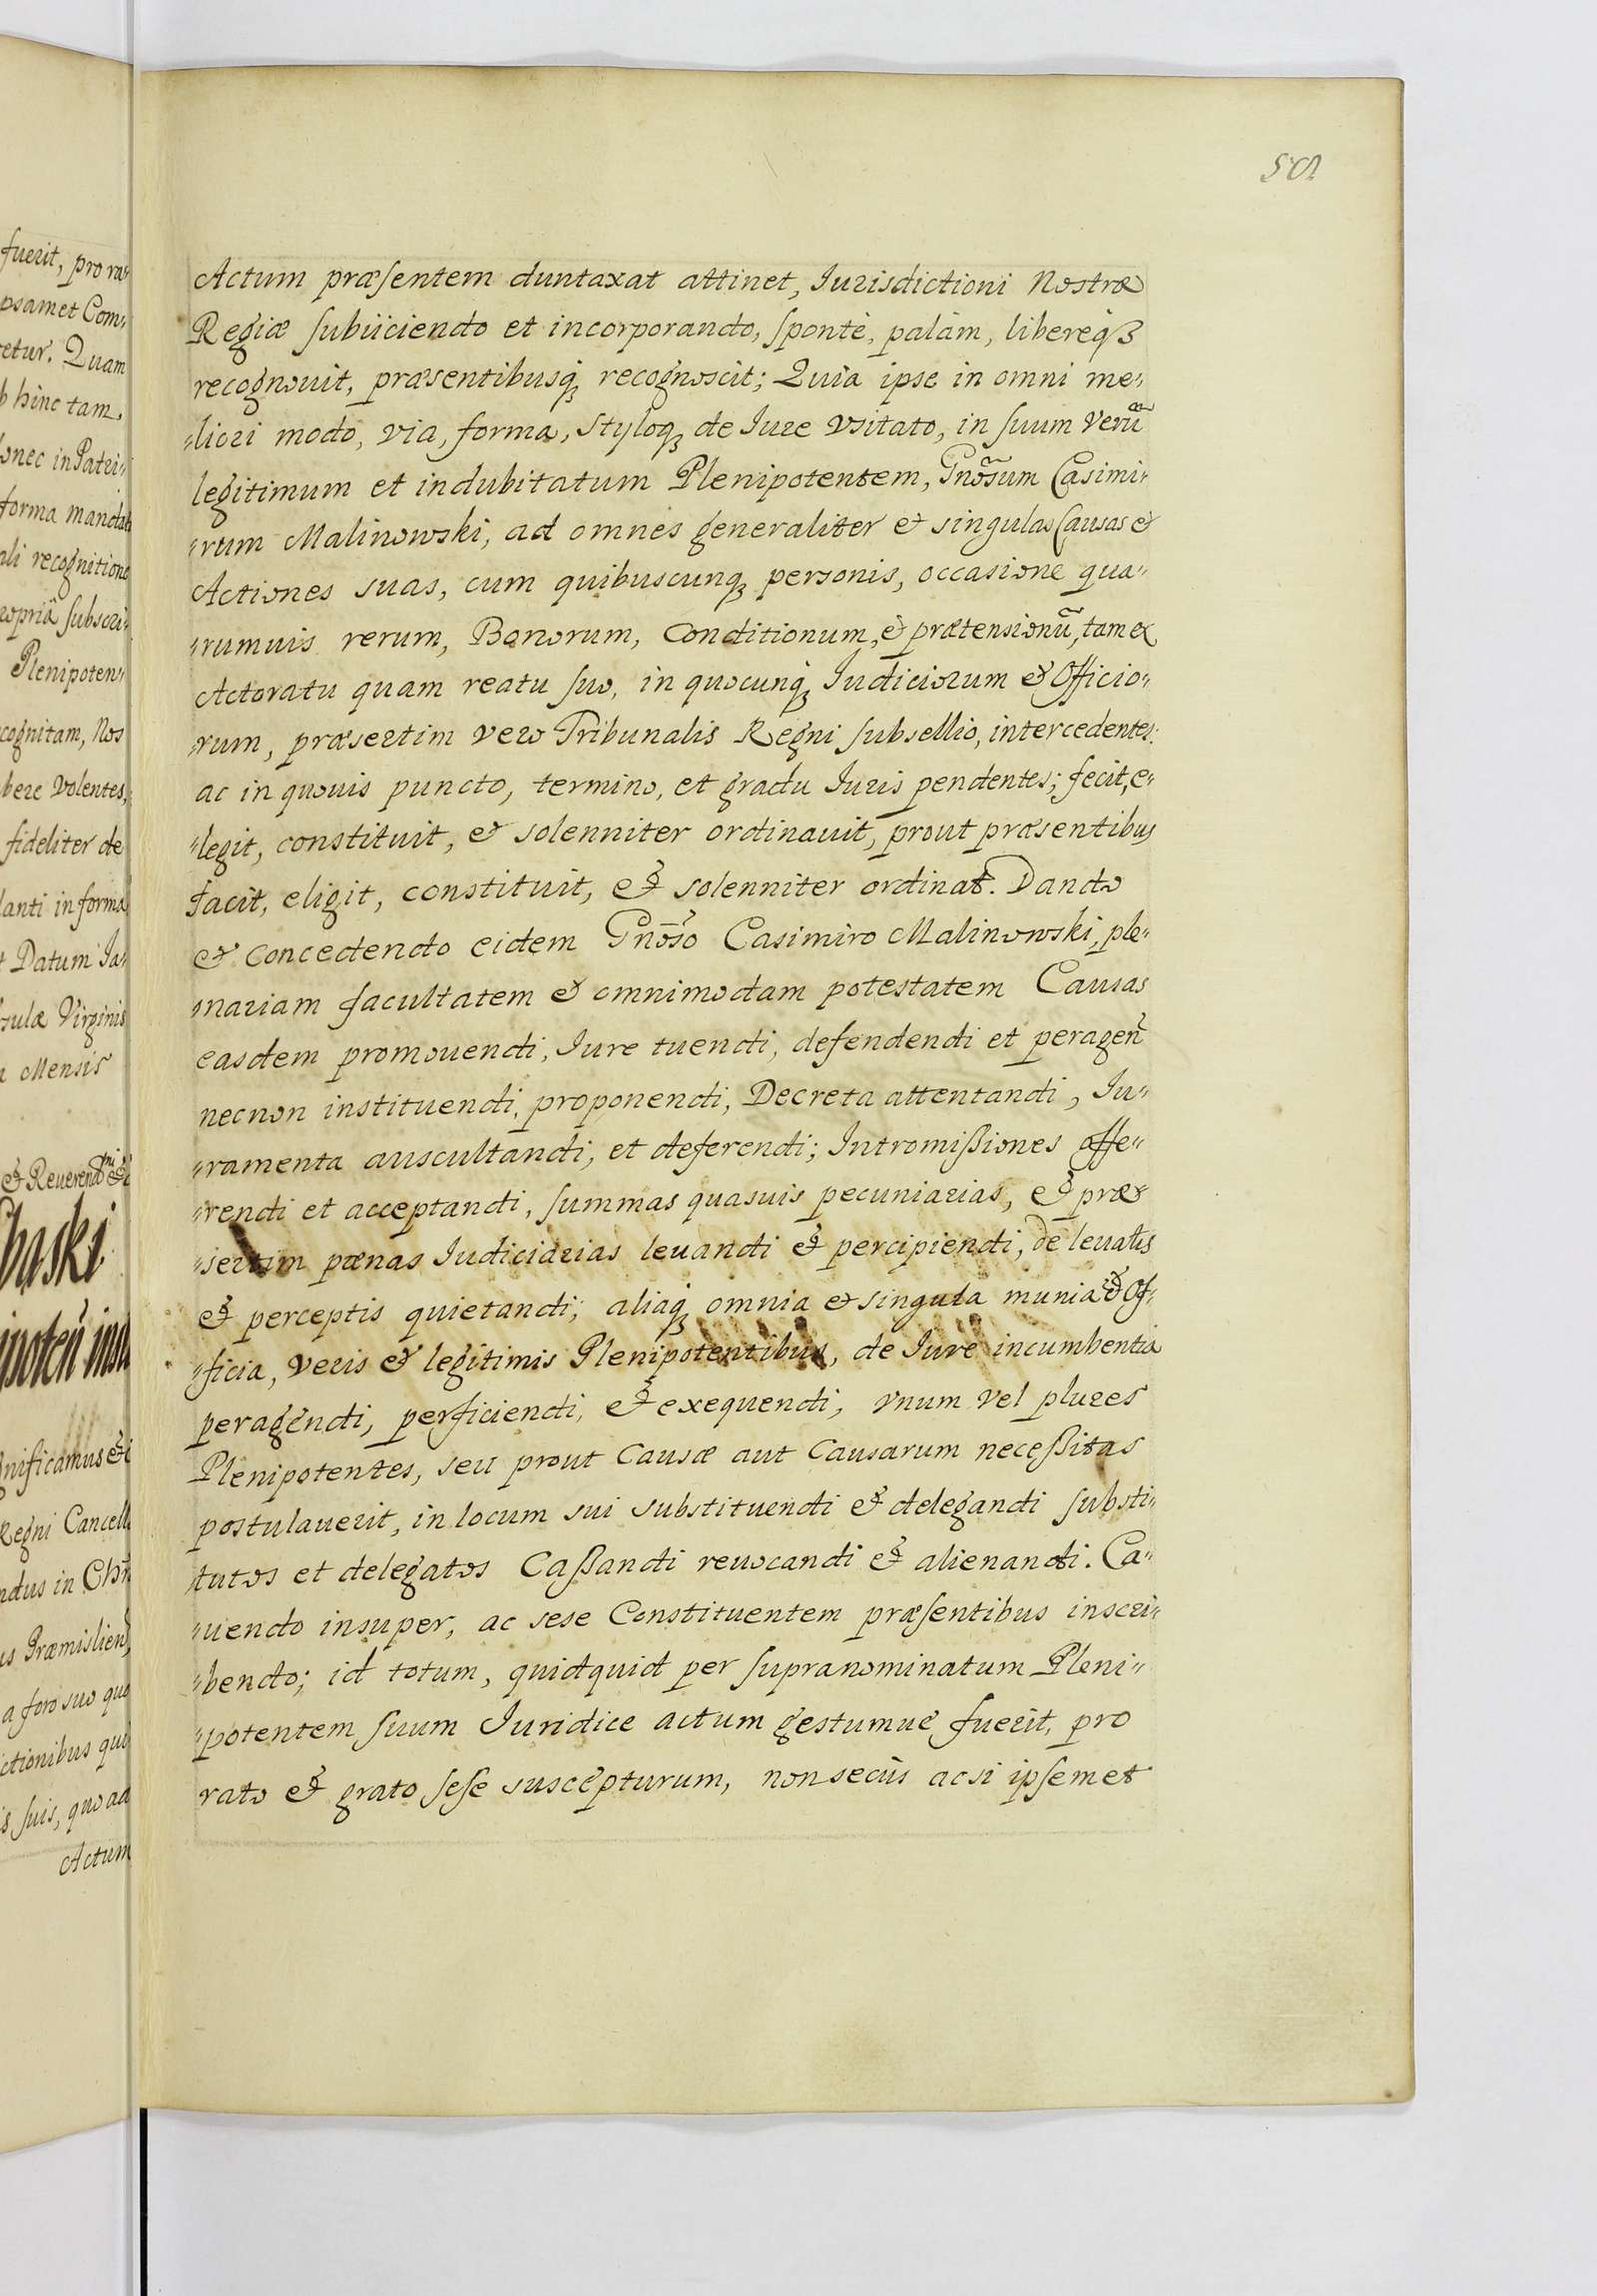 Actum præsentem duntaxat attinet, Iurisdictioni Nostræ
Regiæ subiiciendo et incorporando, spontè, palàm, libereq̀ꝫ
recognouit, præsentibusq́ꝫ recognoscit; Quia ipse in omni me„
„liori modo, via, forma, styloqꝫ de Iure vsitato, in suum verũ
legitimum et indubitatum Plenipotentem, Gnõsum Casimi„
„rum Malinowski, ad omnes generaliter & singulas Causas &
Actiones suas, cum quibuscunqꝫ personis, occasione qua„
„rumuis rerum, Bonorum, Conditionum, & prætensionũ, tam ex
Actoratu quam reatu suo, in quocunq́ꝫ Iudiciorum & Officio„
„rum, præsertim vero Tribunalis Regni subsellio, intercedentes:
ac in quouis puncto, termino, et gradu Iuris pendentes; fecit, e„
„legit, constituit, & solenniter ordinauit, prout præsentibus
facit, eligit, constituit, & solenniter ordinat. Dando
& concedendo eidem Gnõso Casimiro Malinowski, ple„
„nariam facultatem & omnimodam potestatem Causas
easdem promouendi, Iure tuendi, defendendi et peragen̄
necnon instituendi, proponendi, Decreta attentandi, Iu„
„ramenta auscultandi, et deferendi; Intromißiones offe„
„rendi et acceptandi, summas quasuis pecuniarias, & præ„
„sertim pœnas Iudiciarias leuandi & percipiendi, de leuatis
& perceptis quietandi; aliaq́ꝫ omnia & singula munia & Of„
„ficia, veris & legitimis Plenipotentibus, de Iure incumbentia
peragendi, perficiendi, & exequendi, vnum vel plures
Plenipotentes, seu prout Causæ aut Causarum neceßitas
postulauerit, in locum sui substituendi & delegandi substi„
„tutos et delegatos Caßandi reuocandi & alienandi. Ca„
„uendo insuper, ac sese Constituentem præsentibus inscri„
„bendo; id totum, quidquid per supranominatum Pleni„
„potentem suum Iuridice actum gestumue fuerit, pro
rato & grato sese suscepturum, non secùs acsi ipsemet